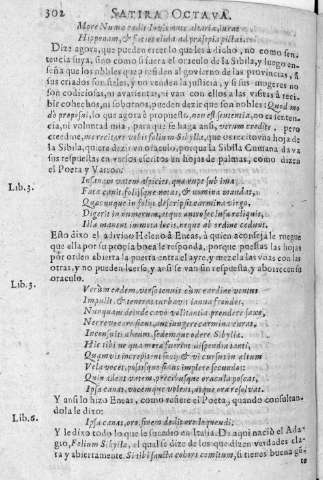 302 SATIRA OCTAVA.
More Numæ cædit Iovis ante altaria, iurat
Hipponam, & facies olida ad præsepia pictas.
Dize agora, que pueden creer lo que les à dicho, no como sen-
tencia suya, sino como si fuera el oraculo de la Sibila, y luego en-
seña que los nobles que presiden al govierno de las provincias, si
sus criados son fieles, y no venden la justicia, y si sus mugeres no
son codiciosas, ni avarientas, ni van con ellos a las visitas à recibir
cohechos, ni sobornos, pueden dezir que son nobles: Quod modo
proposui, lo que agora è propuesto, non est sententia, no es senten-
cia, ni voluntad mia, para que se haga ansi, verum credite, pero
creedme, me recitare vobis folium Sibyllæ, que os recito vna hoja de la
Sibila, quiere dezir vn oraculo, porque la Sibila Cumana dava
sus respuestas en versos escritos en hojas de palmas, como dizen
el Poeta y Varron:
Lib. 3. Insanam vatem aspicies, quæ rupe sub ima,
Fata canit, foliisque notas, & nomina mandat,
Quæcunque in foliis descripsit carmina virgo,
Digerit in numerum, atque antro seclusa relinquit,
Illa manent immota locis, neque ab ordine cedunt.
Esto dixo el adivino Heleno à Eneas, à quien aconseja le ruegue
que ella por su propia boca le responda, porque puestas las hojas
por orden abierta la puerta entra el ayre, y mezcla las vnas con las
otras, y no pueden leerse, y ansi se van sin respuesta, y aborrecen su
oraculo.
Lib. 3. Verum eadem, verso tenuis cum cardine ventus
Impulit, & teneras turbavit ianua frondes,
Nunquam deinde cavo volitantia prendere saxo,
Nec revocare situs, aut iungere carmina curat,
Inconsulti abeunt, sedemque odere Sibyllæ.
Hic tibi ne qua moræ fuerint dispendia tanti,
Quamvis increpitent socii, & vi cursus in altum
Vela vocet, possisque sinus implere secundos:
Quin adeas vatem, precibusque oracula poscas,
Ipsa canat, vocemque volens, atque ora resolvat.
Y ansi lo hizo Eneas, como refiere el Poeta, quando consultan-
dola le dixo:
Lib. 6. Ipsa canas, oro, finem dedit ore loquendi.
Y le dixo todo lo que le sucedio en Italia. De aqui naciò el Ada-
gio, Folium Sibylæ, el qual se dize de los que dizen verdades cla-
ra y abiertamente. Si tibi sancta cohors comitum, si tienes buena gē-
te